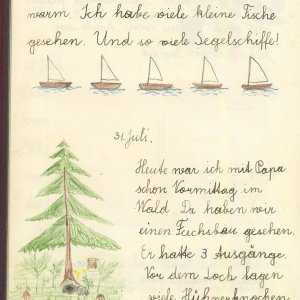 warm. Ich habe viele kleine Fische
gesehen. Und so viele Segelschiffe!
31. Juli.
Heute war ich mit Papa
schon Vormittag im
Wald. Da haben wir
einen Fuchsbau gesehen.
Er hatte 3 Ausgänge.
Vor dem Loch lagen
viele Hühnerknochen